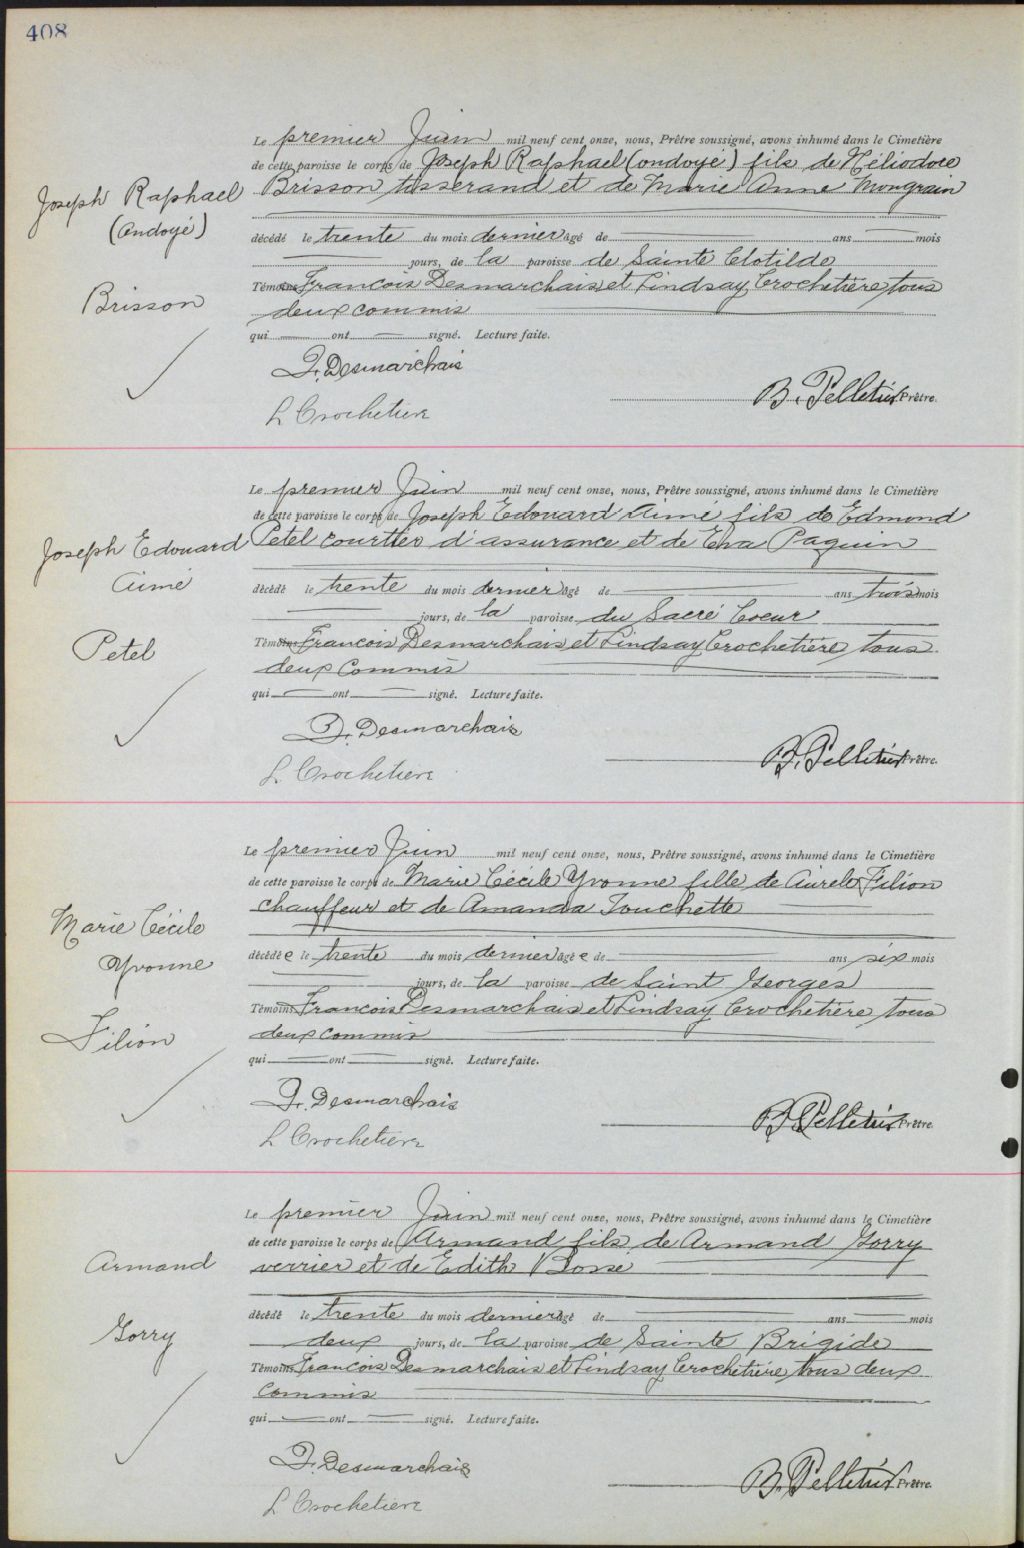 408
Le premier Juin mil neuf cent onze, nous, Prêtre soussigné, avons inhumé dans le Cimetière
de cette paroisse le corps de Joseph Raphael (ondoyé) fils de Héliodore
Brisson, tisserand et de Marie Anne Mongrain
Joseph Raphael
(ondoyé)
Brisson
décédé le trente du mois dernier âgé de ans mois
jours, de la paroisse de Sainte Clotilde
Témoins Francois Desmarchais et Lindsay Crochetière, tous
deux commis
qui ont signé. Lecture faite.
F. Desmarchais
L Crochetiere
B. Pelletier Prêtre.
Le premier Juin mil neuf cent onze, nous, Prêtre soussigné, avons inhumé dans le Cimetière
de cette paroisse le corps de Joseph Edouard Aimé fils de Edmond
Petel courtier d'assurance et de Eva Paquin
Joseph Edouard
Aimé
Petel
décédé le trente du mois dernier âgé de ans trois mois
jours, de la paroisse du Sacré Coeur
Témoins Francois Desmarchais et Lindsay Crochetière, tous
deux commis
qui ont signé. Lecture faite.
F. Desmarchais
L. Crochetiere
B. Pelletier Prêtre.
Le premier Juin mil neuf cent onze, nous, Prêtre soussigné, avons inhumé dans le Cimetière
de cette paroisse le corps de Marie Cécile Yvonne fille de Aurele Filion
chauffeur et de Amanda Touchette
Marie Cécile
Yvonne
Filion
décédée le trente du mois dernier âgée de ans six mois
jours, de la paroisse de Saint Georges
Témoins Francois Desmarchais et Lindsay Crochetière, tous
deux commis
qui ont signé. Lecture faite.
F. Desmarchais
L Crochetiere
B. Pelletier Prêtre.
Le premier Juin mil neuf cent onze, nous, Prêtre soussigné, avons inhumé dans le Cimetière
de cette paroisse le corps de Armand fils de Armand Gorry
verrier et de Edith Bosse
Armand
Gorry
décédé le trente du mois dernier âgé de ans mois
deux jours, de la paroisse de Sainte Brigide
Témoins Francois Desmarchais et Lindsay Crochetière, tous deux
commis
qui ont signé. Lecture faite.
F. Desmarchais
L Crochetiere
B. Pelletier Prêtre.